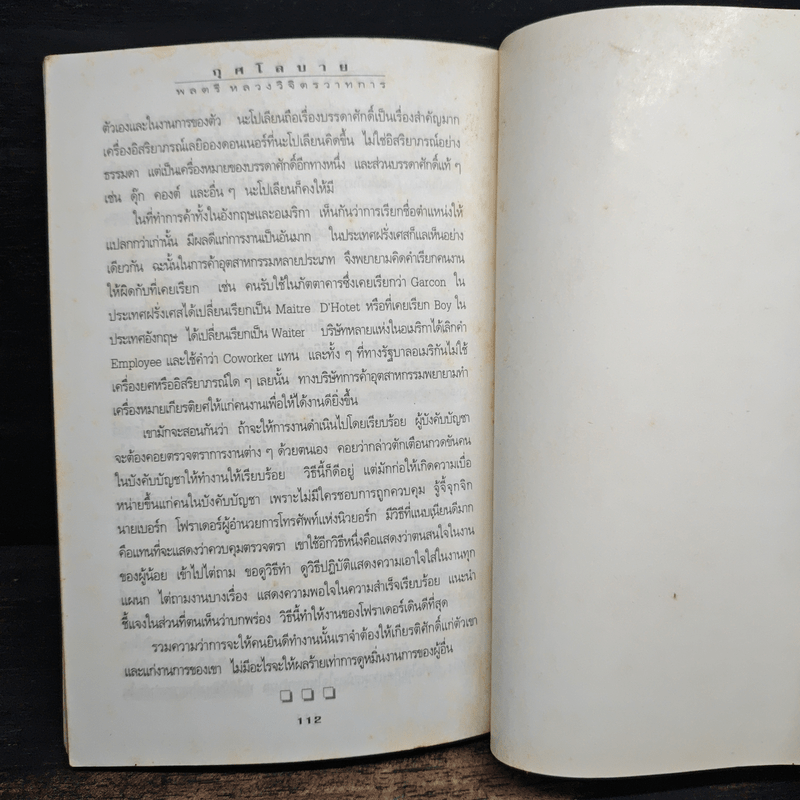 กุศโลบาย
พลตรี หลวงวิจิตรวาทการ
ตัวเองและในงานการของตัว นะโปเลียนถือเรื่องบรรดาศักดิ์เป็นเรื่องสำคัญมาก
เครื่องอิสริยาภรณ์เลยิอองดอนเนอร์ที่นะโปเลียนคิดขึ้น ไม่ใช่อิสริยาภรณ์อย่าง
ธรรมดา แต่เป็นเครื่องหมายของบรรดาศักดิ์อีกทางหนึ่ง และส่วนบรรดาศักดิ์แท้ ๆ
เช่น ดุ๊ก คองต์ และอื่น ๆ นะโปเลียนก็คงให้มี
ในที่ทำการค้าทั้งในอังกฤษและอเมริกา เห็นกันว่าการเรียกชื่อตำแหน่งให้
แปลกกว่าเก่านั้น มีผลดีแก่การงานเป็นอันมาก ในประเทศฝรั่งเศสก็แลเห็นอย่าง
เดียวกัน ฉะนั้นในการค้าอุตสาหกรรมหลายประเภท จึงพยายามคิดคำเรียกคนงาน
ให้ผิดกับที่เคยเรียก เช่น คนรับใช้ในภัตตาคารซึ่งเคยเรียกว่า Garcon ใน
ประเทศฝรั่งเศสได้เปลี่ยนเรียกเป็น Maitre D'Hotet หรือที่เคยเรียก Boy ใน
ประเทศอังกฤษ ได้เปลี่ยนเรียกเป็น Waiter บริษัทหลายแห่งในอเมริกาได้เลิกคำ
Employee และใช้คำว่า Coworker แทน และทั้ง ๆ ที่ทางรัฐบาลอเมริกันไม่ใช้
เครื่องยศหรืออิสริยาภรณ์ใด ๆ เลยนั้น ทางบริษัทการค้าอุตสาหกรรมพยายามทำ
เครื่องหมายเกียรติยศให้แก่คนงานเพื่อให้ได้งานดียิ่งขึ้น
เขามักจะสอนกันว่า ถ้าจะให้การงานดำเนินไปโดยเรียบร้อย ผู้บังคับบัญชา
จะต้องคอยตรวจตราการงานต่าง ๆ ด้วยตนเอง คอยว่ากล่าวตักเตือนกวดขันคน
ในบังคับบัญชาให้ทำงานให้เรียบร้อย วิธีนี้ก็ดีอยู่ แต่มักก่อให้เกิดความเบื่อ
หน่ายขึ้นแก่คนในบังคับบัญชา เพราะไม่มีใครชอบการถูกควบคุม จู้จี้จุกจิก
นายเบอร์ก โฟราเดอร์ผู้อำนวยการโทรศัพท์แห่งนิวยอร์ก มีวิธีที่แนบเนียนดีมาก
คือแทนที่จะแสดงว่าควบคุมตรวจตรา เขาใช้อีกวิธีหนึ่งคือแสดงว่าตนสนใจในงาน
ของผู้น้อย เข้าไปไต่ถาม ขอดูวิธีทำ ดูวิธีปฏิบัติแสดงความเอาใจใส่ในงานทุก
แผนก ไต่ถามงานบางเรื่อง แสดงความพอใจในความสำเร็จเรียบร้อย แนะนำ
ชี้แจงในส่วนที่ตนเห็นว่าบกพร่อง วิธีนี้ทำให้งานของโฟราเดอร์เดินดีที่สุด
รวมความว่าการจะให้คนยินดีทำงานนั้นเราจำต้องให้เกียรติศักดิ์แก่ตัวเขา
และแก่งานการของเขา ไม่มีอะไรจะให้ผลร้ายเท่าการดูหมิ่นงานการของผู้อื่น
112